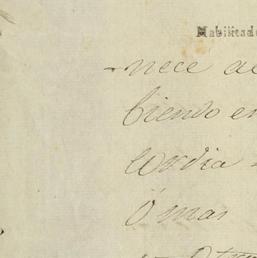 Habilitado
-nece
biendo en
cordia
ó mas